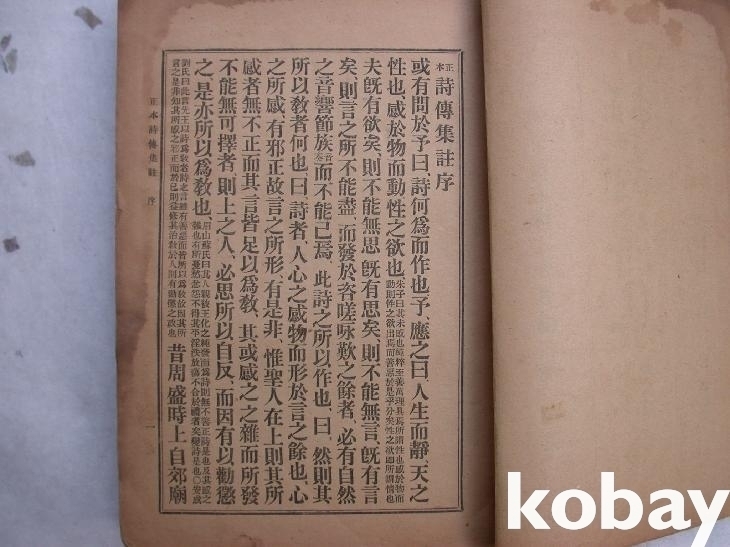 正本詩傳集註序
或有問於予曰、詩何爲而作也、予應之曰、人生而靜、天之
性也、感於物而動、性之欲也朱子曰其未感也純粹至善萬理具焉所謂性也感於物而動則性之欲出焉而善惡於是乎分矣性之欲卽所謂情也
夫旣有欲矣、則不能無思、旣有思矣、則不能無言、旣有言
矣、則言之所不能盡、而發於咨嗟咏歎之餘者、必有自然
之音響節族音奏而不能已焉、此詩之所以作也、曰、然則其
所以敎者何也、曰、詩者、人心之感物而形於言之餘也、心
之所感、有邪正、故言之所形、有是非、惟聖人在上、則其所
感者無不正、而其言皆足以爲敎、其或感之之雜、而所發
不能無可擇者、則上之人、必思所以自反、而因有以勸懲
之、是亦所以爲敎也
劉氏曰此言先王以詩爲敎
昔周盛時、上自郊廟
正本詩傳集註 序
一
kobay